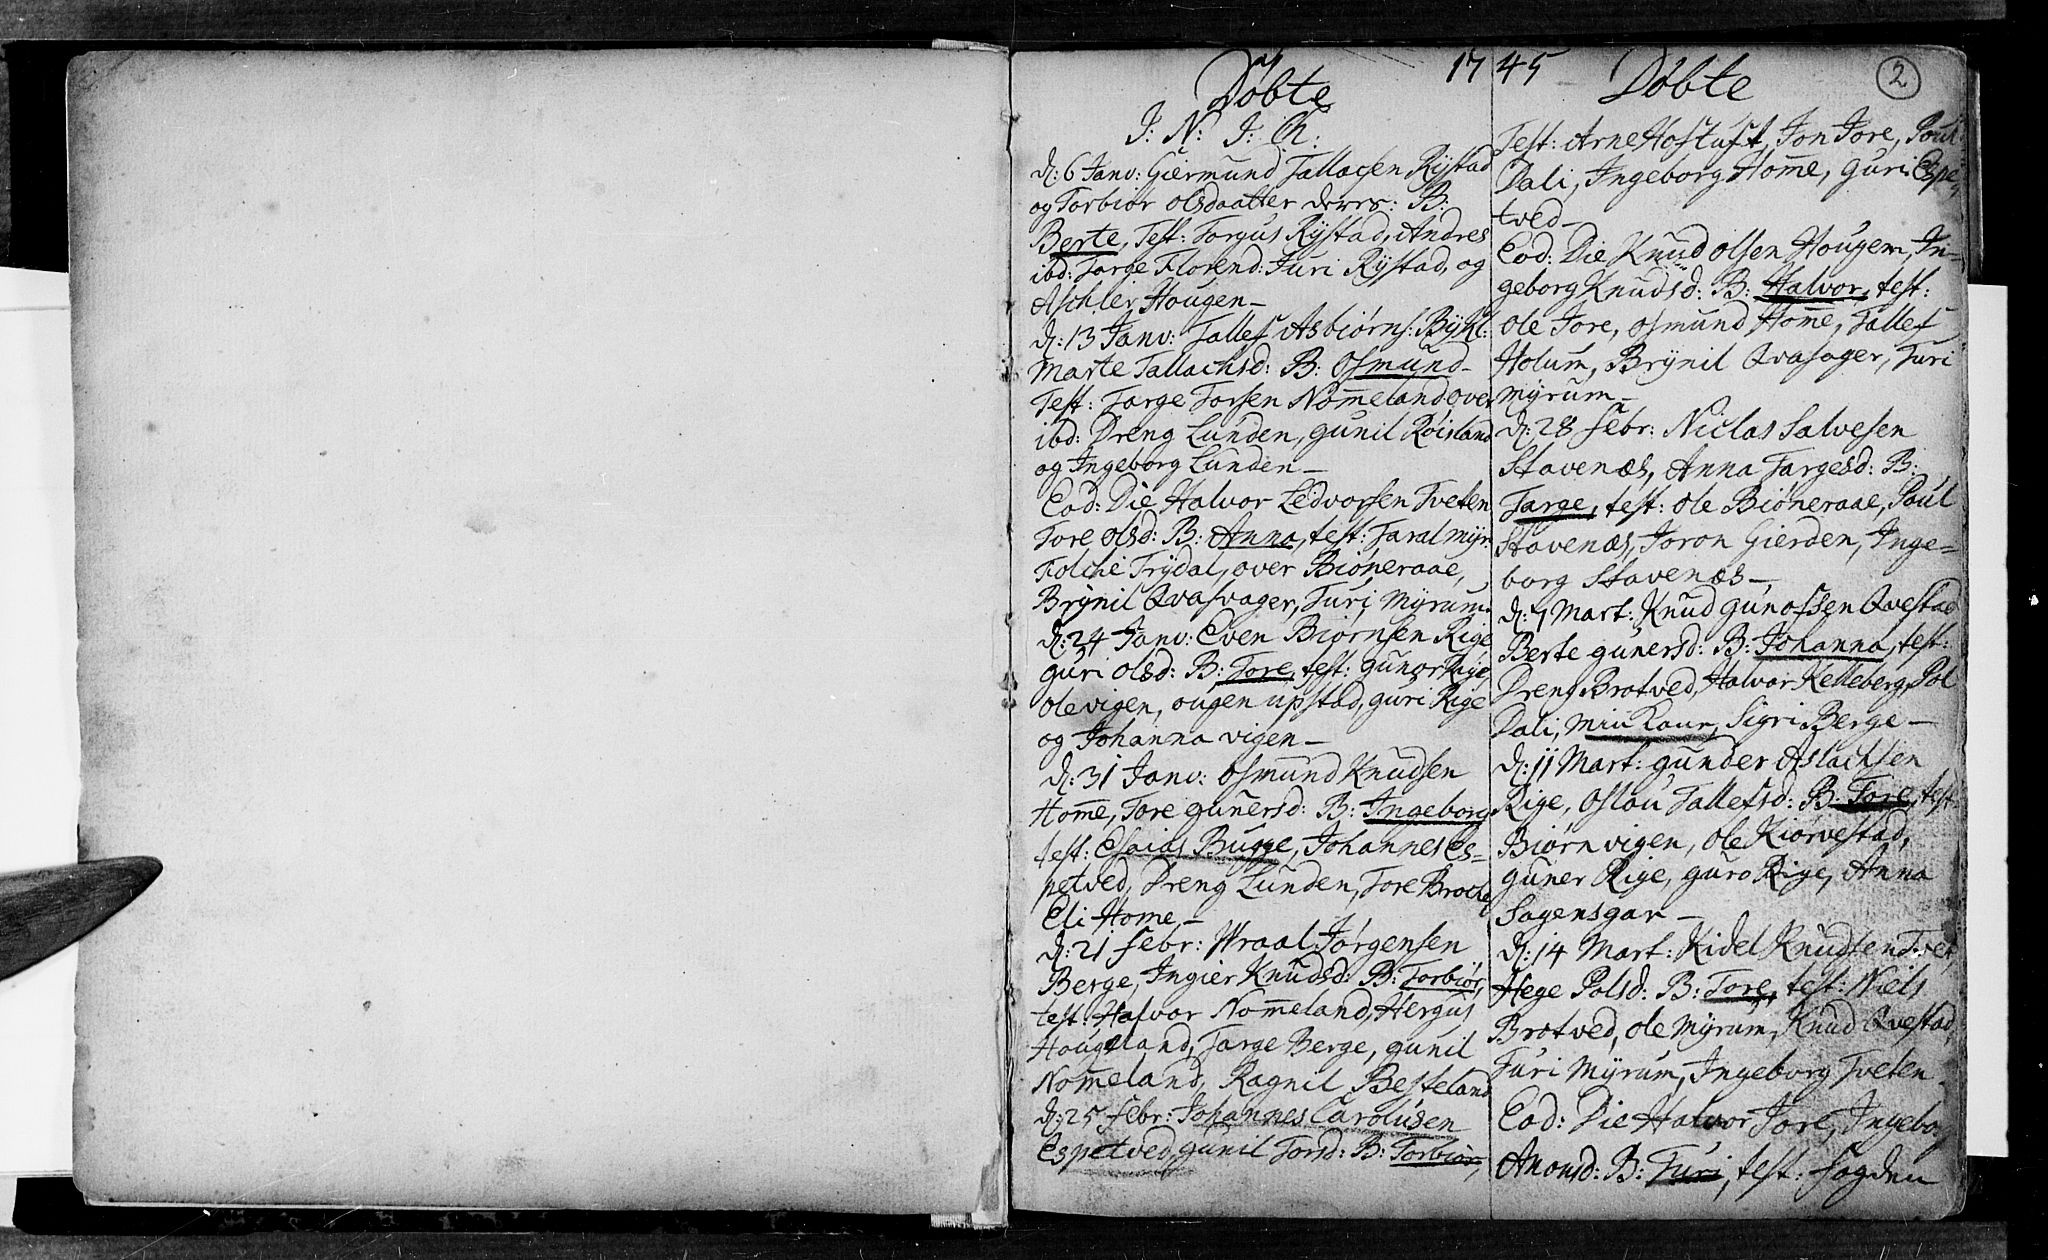 Døbte
1745
J: N: J: Ch:
d: 6 Janv: Giermund Tallacsen Rÿstad
og Torbior olsdaatter deres: B:
Berte, Test: Torgus Rÿstad, Andres
ibd: Targe Florend: Turi Rÿstad, og
Aschler Hougen –
d: 13 Janv: Tallef Asbiørns: Bÿkl:
Marte Tallachsd: B: Osmund –
Test: Targe Torsen Nom̄eland over
ibd: Dreng Lunden, gunil Røisland
og Ingeborg Lunden –
Eod: Die Halvor Ledvorsen Tveten
Tore olsd: B: Anna, test: Taral mÿr:
Folche Trÿdal, over Biøneraae,
Brÿnil Qvasvager, Turi Mÿrum.
d: 24 Janv: Even Biørnsen Rige
guri olsd: B: Tore, test: gunor Rige,
Ole vigen, ougen upstad, guri Rige
og Johanna vigen –
d: 31 Janv: Osmund Knudsen
Hom̄e, Tore gunersd: B: Ingeborg
test: Esaias Bugge, Johannes Es=
petved, Dreng Lunden, Tore Brocke
Eli Home –
d: 21 Febr: Wraal Jørgensen
Berge, Ingier Knudsd: B: Torbiør,
test: Halvor Nom̄eland, Hergus
Hougeland, Targe Berge, gunil
Nom̄eland, Ragnil Besteland
d: 25 Febr: Johannes Carolusen
Espetved, gunil Torsd: B: Torbior,
Døbte
2
Test: Arne Hostuft, Jon Jore, Poul
Dali, Ingeborg Hom̄e, guri Espe,
tved –
Eod: Die Knud olsen Hougen, In=
geborg Knudsd: B: Halvor, test:
Ole Jore, Osmund Hom̄e, Tallef
Holum, Brÿnil Qvasager, Turi
Mÿrum –
d: 28 Febr: Niclas Salvesen
Stavenæs, Anna Targesd: B:
Targe, test: Ole Biøneraae, Paul
Stavenæs, Joron Gierden, Inge=
borg Stavenæs –
d: 7 Mart: Knud gunofsen Qvestad
Berte gunersd: B: Johanna, test:
Dreng Brotved, Halvor Kelleberg, Pol
Dali, min Kone, Sigri Berge –
d: 11 Mart: gunder Aslachsen
Rige, Oslau Tallefsd: B: Tore, test:
Biørn vigen, Ole Kiørvestad,
guner Rige, guro Rige, Anna
Sagensgar –
d: 14 Mart: Kidel Knudsen Tvet,
Hege Polsd: B: Tore, test: Niels
Brotved, Ole Mÿrum, Knud Qvestad,
Turi Mÿrum, Ingeborg Tveten
Eod: Die Halvor Jore, Ingebo,
Anonsd: B: Turi, test: Fogden